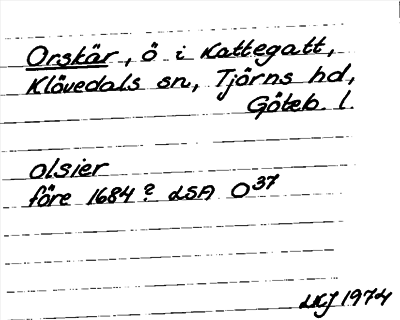 Orskär, ö i Kattegatt,
Klövedals sn, Tjörns hd,
Göteb. l.
olsier
före 1684? LSA O37
LKJ 1974